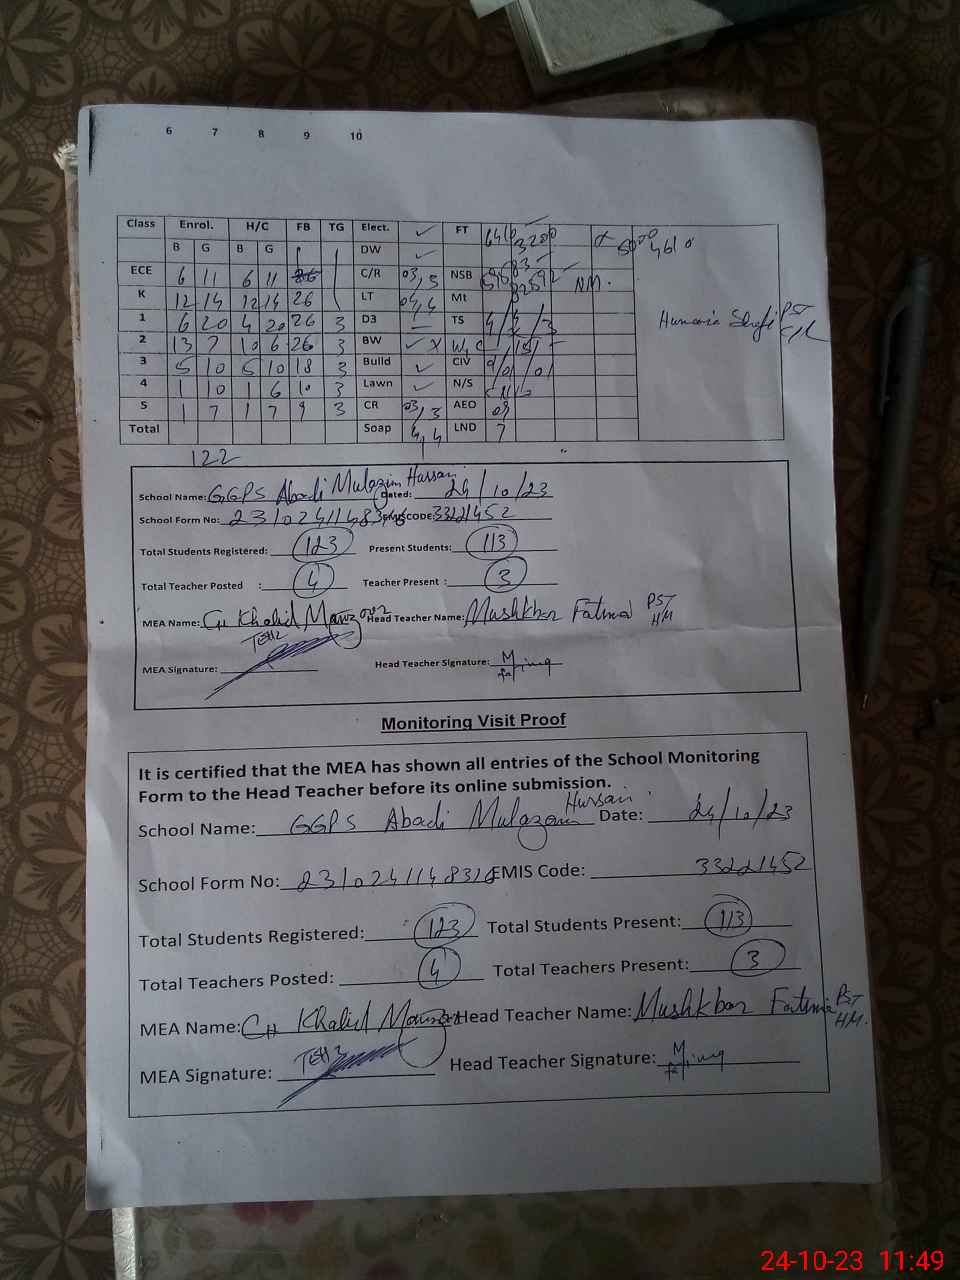 6 7 8 9 10
Class Enrol. H/C FB TG Elect. ✓ FT 6410 3200 5000 4610
B G B G DW ✓
ECE 6 11 6 11 C/R 03, 5 NSB NM.
K 12 14 12 14 26 LT 04, 4 Mt
1 6 20 4 20 26 3 D3 – TS 4/2/3 Humaria PST
2 13 7 10 6 26 3 BW ✓ x WC
3 5 10 5 10 18 3 Build ✓ CIV
4 1 10 1 6 10 3 Lawn ✓ N/S
5 1 7 1 7 9 3 CR 03, 3 AEO 03
Total Soap 4, 4 LND 7
122
School Name: GGPS Abadi Mulazim Hussain Dated: 24/10/23
School Form No: EMISCODE: 33221452
Total Students Registered: 123 Present Students: 113
Total Teacher Posted : 4 Teacher Present : 3
MEA Name: CH Khalid Manzoor Head Teacher Name: Mushkbar Fatima PST HM
MEA Signature: Head Teacher Signature:
Monitoring Visit Proof
It is certified that the MEA has shown all entries of the School Monitoring
Form to the Head Teacher before its online submission.
School Name: GGPS Abadi Mulazam Hussain Date: 24/10/23
School Form No: EMIS Code: 33221452
Total Students Registered: 123 Total Students Present: 113
Total Teachers Posted: 4 Total Teachers Present: 3
MEA Name: CH Khalid Manzoor Head Teacher Name: Mushkbar Fatima PST HM.
MEA Signature: Head Teacher Signature:
24-10-23 11:49